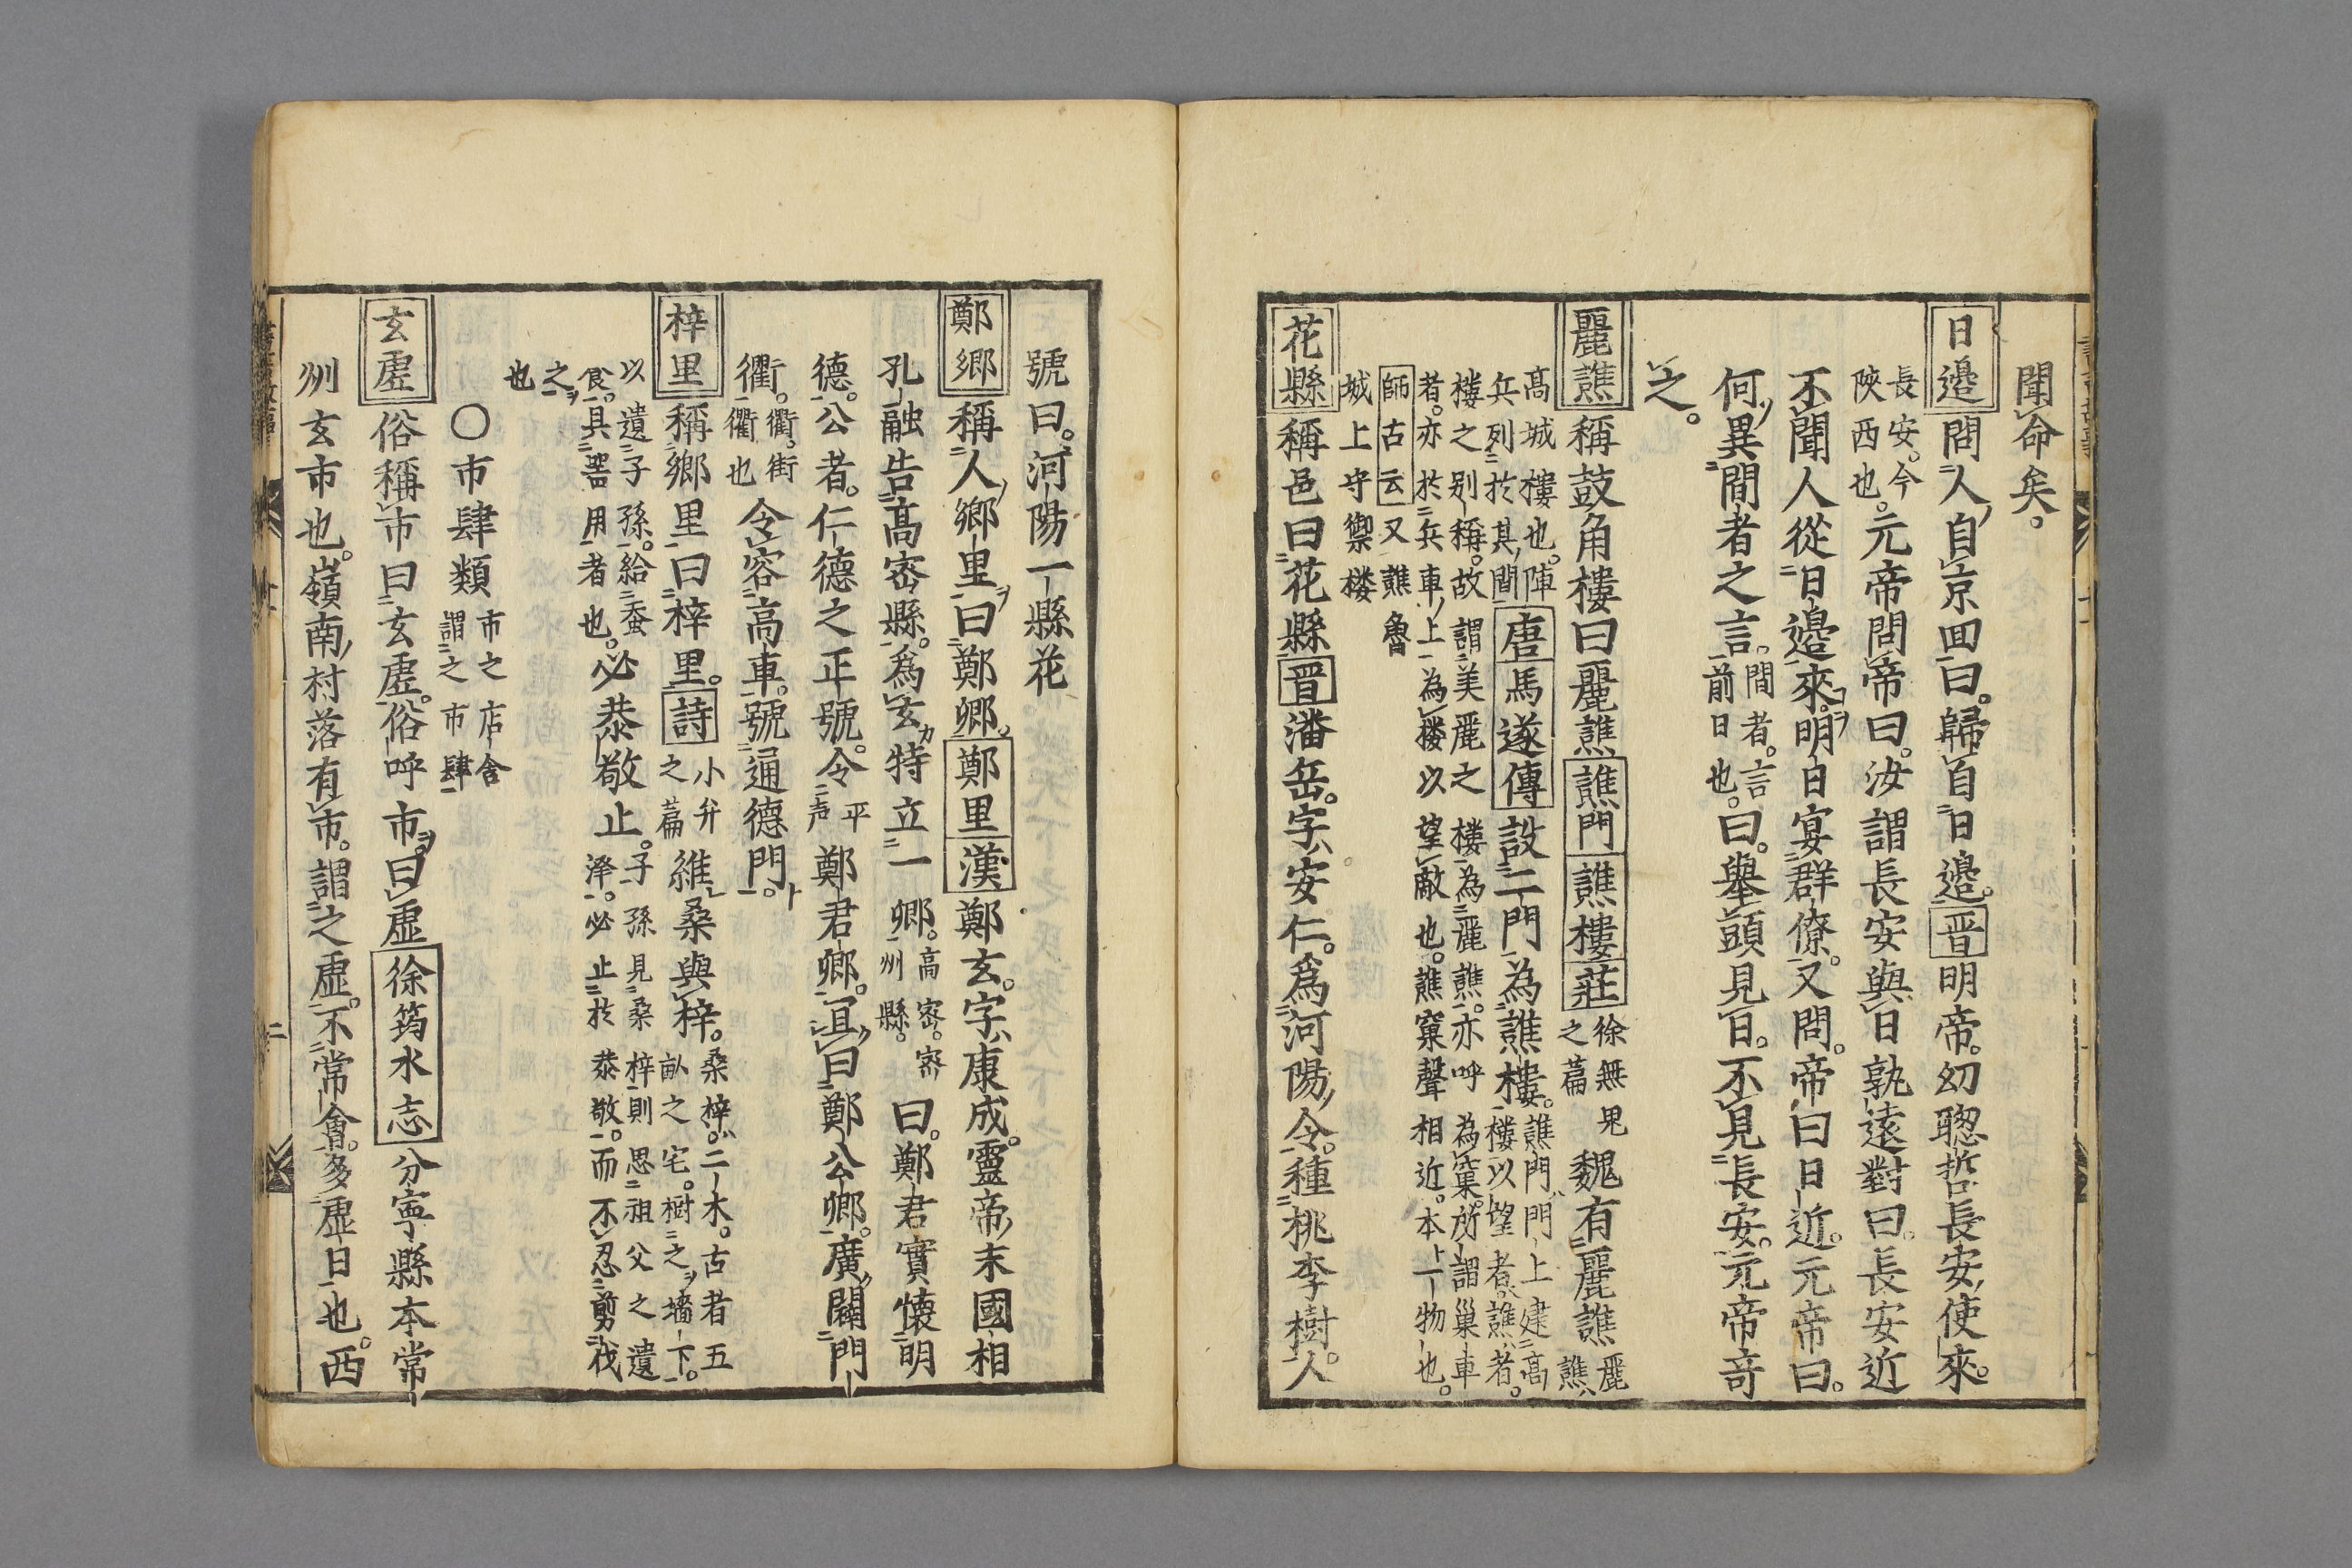 聞命矣。
日邉 問人自京回曰。歸自日邉。晋明帝。幼聰哲長安使來。
長安。今
陝西也。
元帝問帝曰。汝謂長安與日孰遠對曰。長安近
不聞人從日邉來。明日宴群僚。又問。帝曰日近。元帝曰。
何異間者之言。
間者。言
前日也。
曰。擧頭見日。不見長安。元帝竒
之。
麗譙 稱鼓角樓曰麗譙 譙門 譙樓 莊
徐無鬼
之篇
魏有麗譙
麗
譙ハ
高城樓也。陣
兵列於其間
唐 馬遂傳 設二門為譙樓。
譙門ハ門上建高
樓以望者。譙ハ者。
樓之别稱。故謂美麗之樓為麗譙。亦呼為巢。所謂巢車
者。亦於兵車上為樓以望敵也。譙窠聲相近。本一物也。
師古云 又譙魯
城上守禦楼
花縣 稱邑曰花縣 晋 潘岳。字ハ安仁。爲河陽令。種桃李樹。人
號曰。河陽一縣花
鄭郷 稱人郷里曰鄭郷。鄭里 漢 鄭玄。字ハ康成。靈帝末國相
孔融告髙宻縣。爲玄特立一
郷。高宻。宻
州縣。
曰。鄭君實懐明
德。公者。仁德之正號。令
平
声
鄭君郷。冝曰鄭公郷。廣開門
衢。
衢。街
衢也
令容高車。號通德門。
梓里 稱郷里曰梓里。詩
小弁
之篇
維桑與梓。
桑梓。二木。古者五
畝之宅。樹之墻下。
以遺子孫。給蚕
食。具噐用者也。
必恭敬止。
子孫見桑梓則思祖父之遺
澤。必止於恭敬。而不忍剪伐
之
也
〇市肆類
市之店舎
謂之市肆
玄虛 俗稱市曰玄虛。俗呼市。曰虛 徐筠水志 分寧縣本常
州玄市也。嶺南村落有市。謂之虛。不常會。多虛日也。西